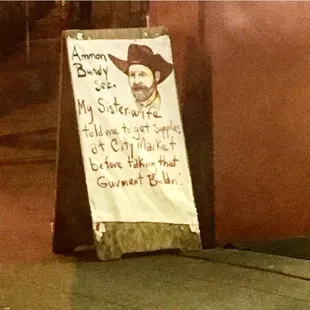 Ammon
Bundy
sez:
My Sister-wife
told me to get supplies
at City Market
before taking that
Guvment Buildn'.